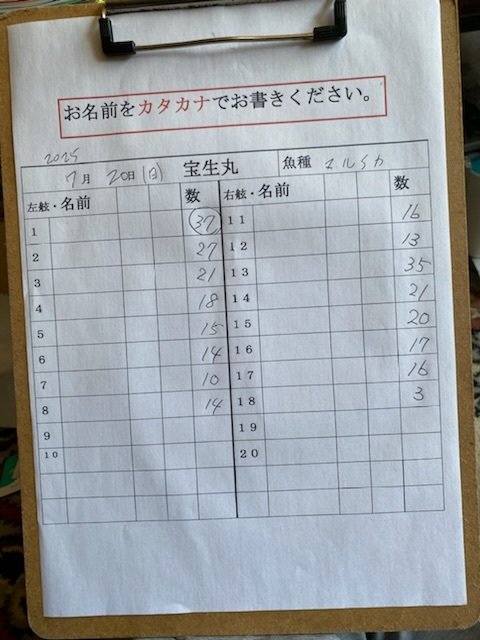 お名前をカタカナでお書きください。
2025
7月 20日 (日) 宝生丸 魚種 マルイカ
左舷・名前 数 右舷・名前 数
1 37 11 16
2 27 12 13
3 21 13 35
4 18 14 21
5 15 15 20
6 14 16 17
7 10 17 16
8 14 18 3
9 19
10 20